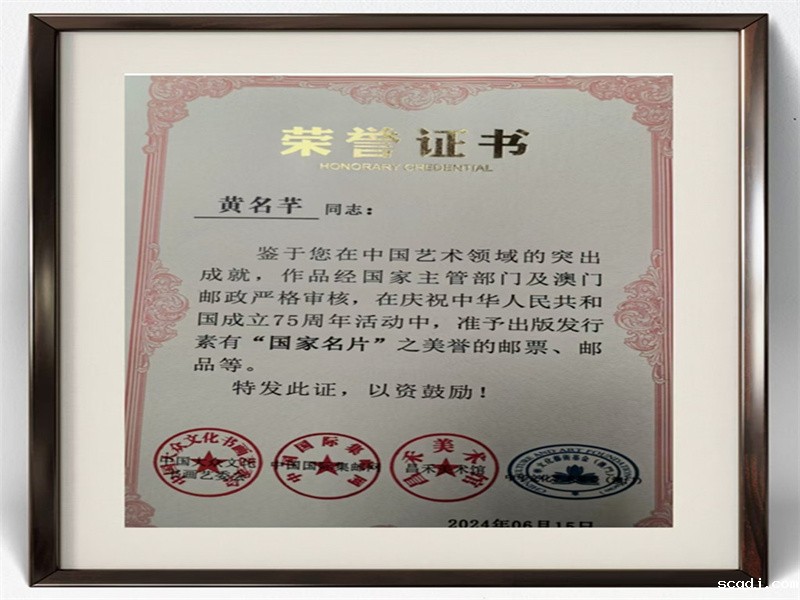 荣誉证书
HONORARY CREDENTIAL
黄名芊 同志：
鉴于您在中国艺术领域的突出
成就，作品经国家主管部门及澳门
邮政严格审核，在庆祝中华人民共和
国成立75周年活动中，准予出版发行
素有“国家名片”之美誉的邮票、邮
品等。
特发此证，以资鼓励！
中国国际集邮网
昌禾美术馆
2024年06月15日
scqdj.com